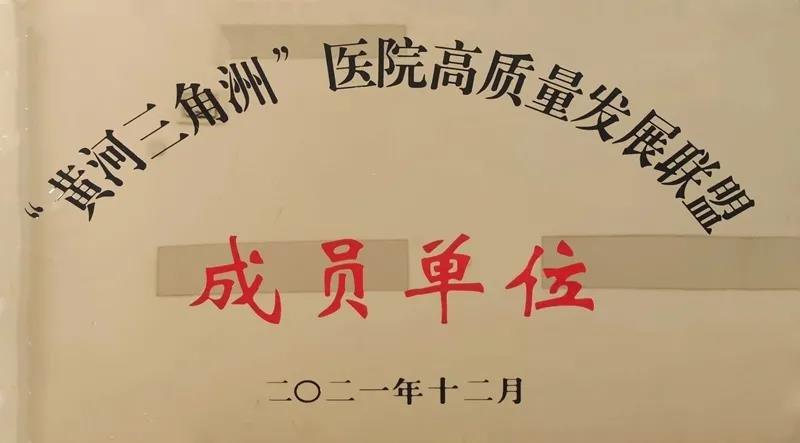 “黄河三角洲”医院高质量发展联盟
成员单位
二〇二一年十二月